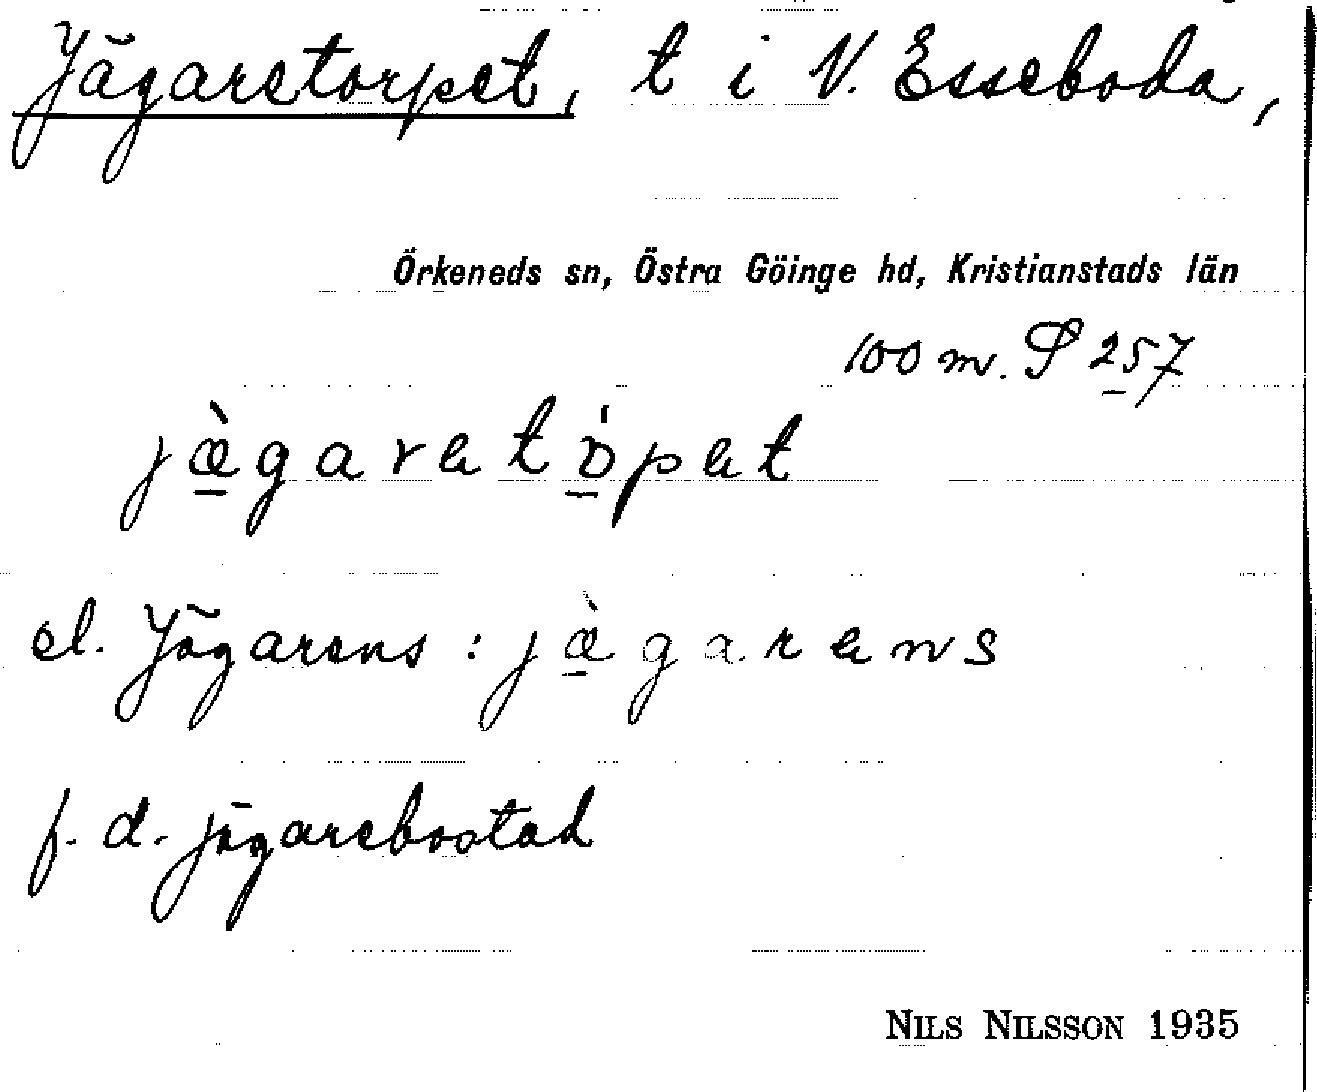 Jägaretorpet, t i V. Esseboda,
Örkeneds sn, Östra Göinge hd, Kristianstads län
100 m. S 257
jæ̀garetópet
el. Jägarens : jæ̀garens
f. d. jägarebostad
NILS NILSSON 1935